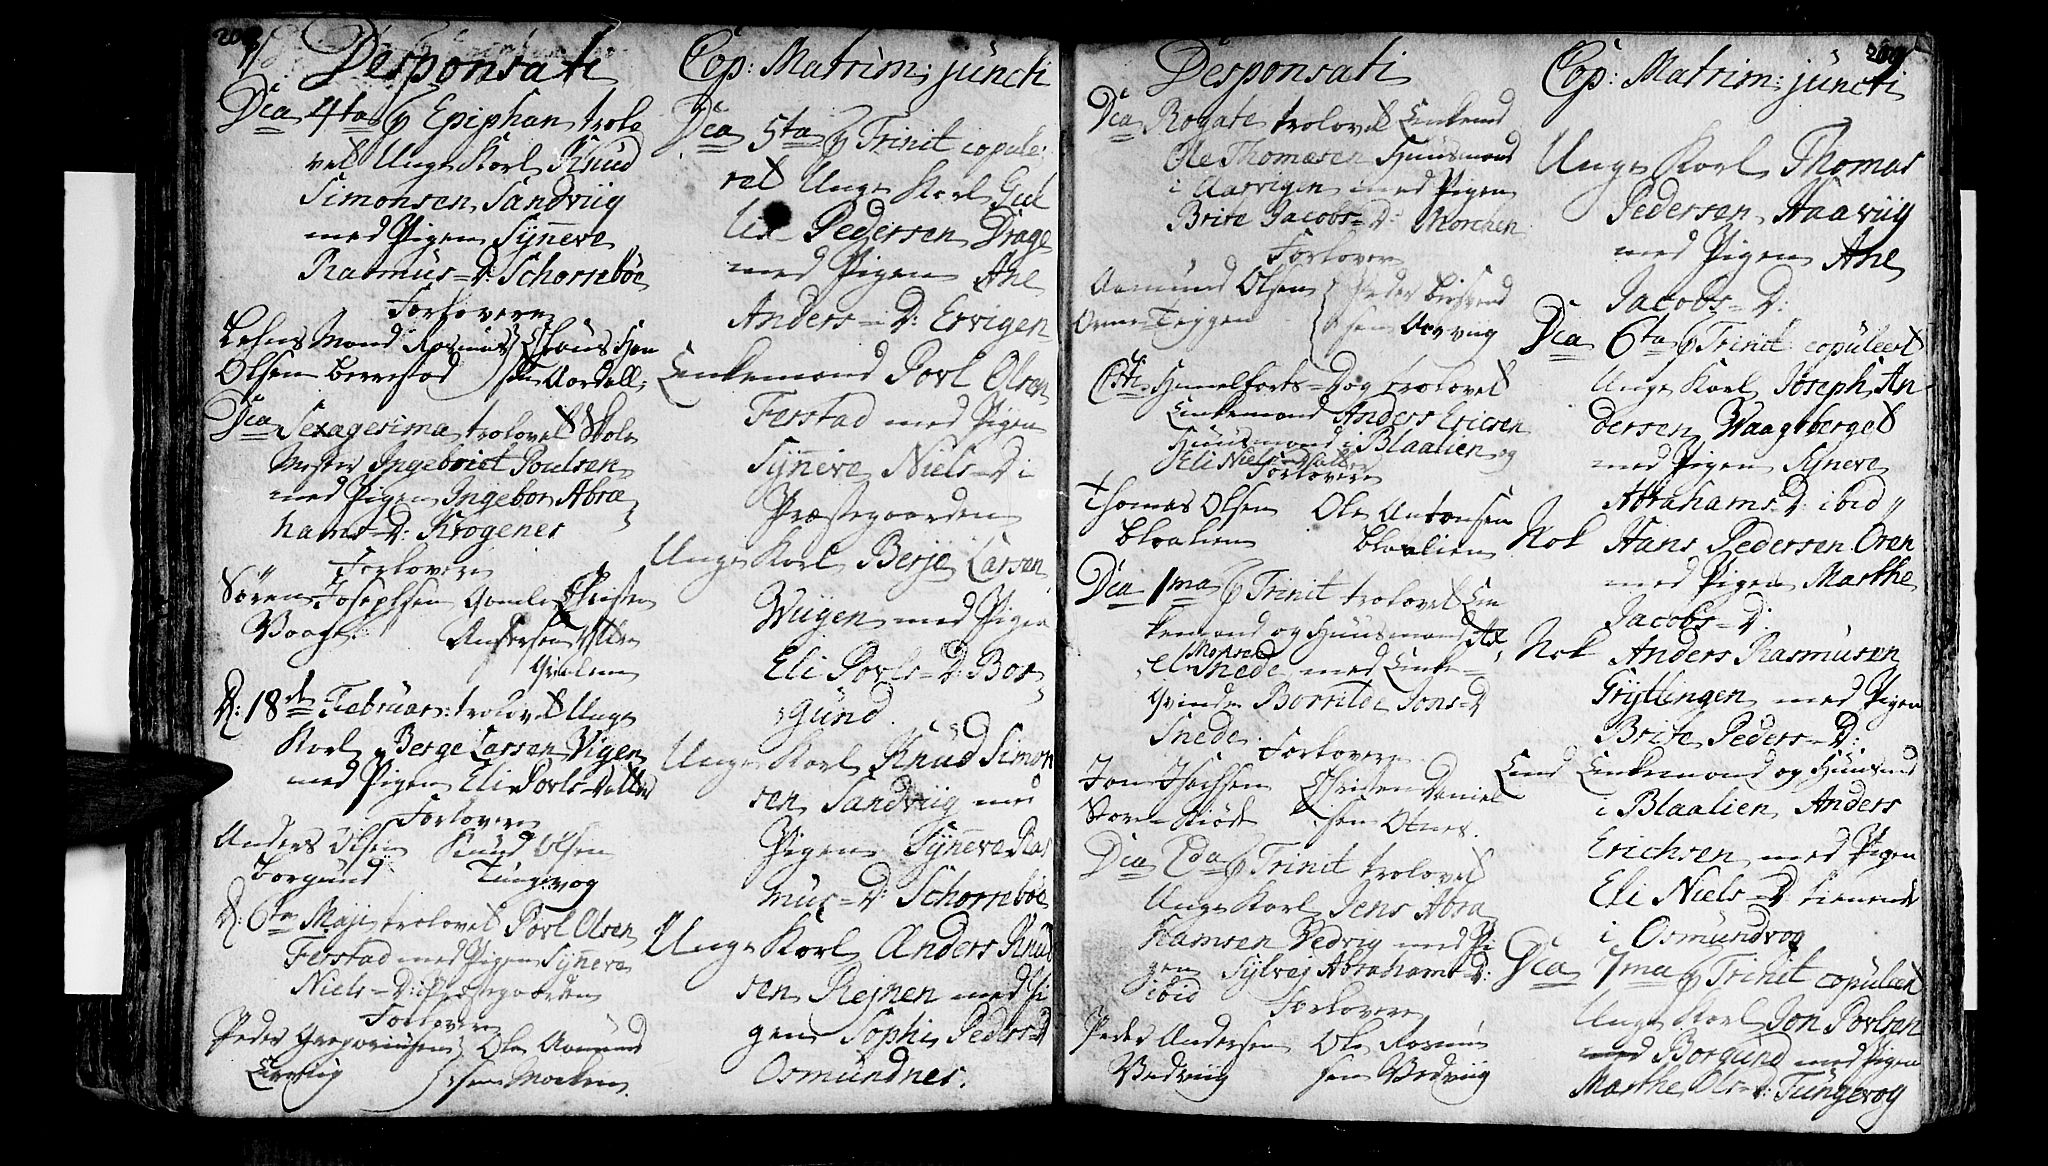 208
Desponsati
Dca 4ta p Epiphan trolo
vet Unge Karl Knud
Simonsen Sandviig
med Pigen Synneve
Rasmus-D: Schornbøe
Forlovere
Lehns Mand Rasmus
Olsen Berrestad
Dca Sexagesima trolovet Skole
Mester Ingebrict Poulsen
med Pigen Ingebor Abra
hams-D: Krogenes
Forlovere
Sören Josephsen Gamle Christen
Vaage Andersen
D: 18de Februar: trolovet Unge
Karl Berge Larsen Vigen
med Pigen Eli Povls-Datter
Forlovere
Anders Olsen Knud Olsen
Borgund Tungevog
D: 6ta Maji trolovet Povl Olsen
Ferstad med Pigen Synneve
Niels-D: Præstegaarden
Forlovere
Peder Gregoriusen Ole Aamund
sen
Cop: Matrim: juncti
Dca 5ta p Trinit copule:
ret Unge Karl Gul
Pedersen Drage
med Pigen Ane
Anders-D: Ervigen
Enkemand Povl Olsen
Ferstad med Pigen
Synneve Niels-D i
Præstegaarden
Unge Karl Berje Larsen
Wiigen med Pigen
Eli Povls-D Bor
gund.
Unge Karl Knud Simon
sen Sandviig med
Pigen Synneve Ras
mus-D: Schornbøe
Unge Karl Anders Knud
sen Rejnen med Pi
gen Sophi Peders-D
Osmundnes.
209
Desponsati
Dca Rogate trolovet Enkemd
Ole Thomæsen Huusmand
i Aarvigen med Pigen
Brite Jacobs-D: Morchen
Forlovere
Aamund Olsen Peder Sivend
Orme-Teggen sen Aarviig
Himelfarts-Dag trolovet
Enkemand Anders Ericsen
Huusmand i Blaalien og
Eli Niels Datter
Forlovere
Thomas Olsen Ole Antonsen
Blaalien Blaalien
Dca 1ma p Trinit trolovet En
kemand og Huusmand
Snede med Enke-
qvinden Borrilde Jons-D
Snede.
Forlovere
Jon Isachsen Christen Daniel
Store sen Otnes.
Dca 2da p Trinit trolovet
Unge Karl Jens Abra
hamsen Vedvig med Pi
gen Sylvaj Abrahams-D:
ibid
Forlovere
Peder Andersen Ole Rasmu
Vedviig sen Vedviig
Cop: Matrim: juncti
Unge Karl Thomas
Pedersen Haaviig
med Pigen Ane
Jacobs-D:
Dca 6ta p Trinit: copuleret
Unge Karl Joseph An-
dersen Waagsberget
med Pigen Syneve
Abrahams-D: ibid
Nok Hans Pedersen Oren
med Pigen Marthe
Jacobs-D:
Nok Anders Rasmusen
Gryttingen med Pigen
Brite Peders-D:
End Enkemand og Huusmd
i Blaalien Anders
Erichsen med Pigen
Eli Niels-D: tienende
i Osmundvog
Dca 7ma p Trinit copuleret
Unge Karl Jon Povlsen
med Borgund med Pigen
Marthe Ols-D: Tungevog